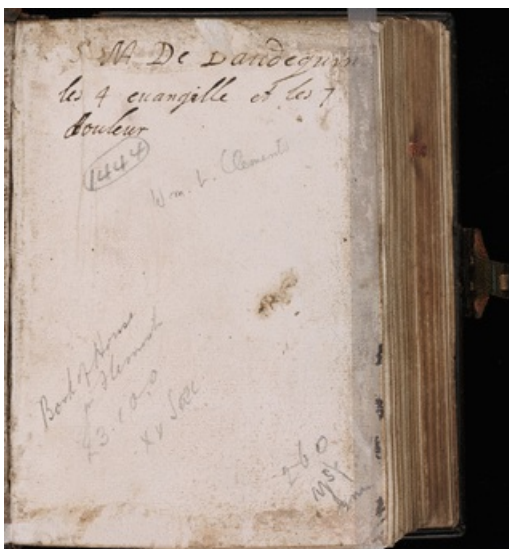 S M De Dandeguin
les 4 euangille et les 7
douleur
1444
Wm. L. Clements
Book of Hours
Flemish
£3.10.0
XV
260